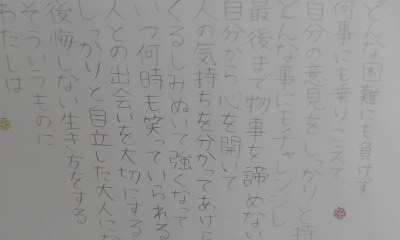 どんな困難にも負けず
何事にも乗りこえて
自分の意見をしっかりと持
どんな事にもチャレンジし
最後まで物事を諦めない
自分から心を開いて
人の気持ちを分かってあげら
くるしみぬいて強くなって
いつ何時も笑っていられる
人との出会いを大切にする
しっかりと自立した大人にな
後悔しない生き方をする
そういうものに
わたしは